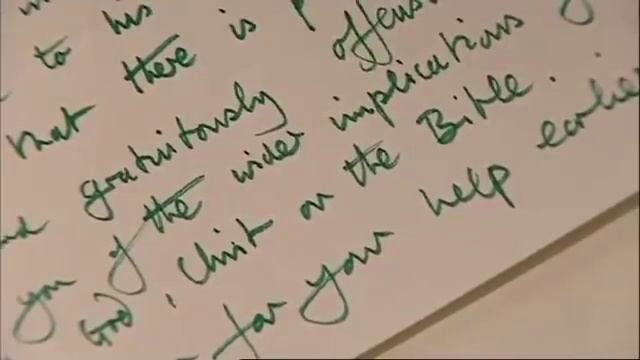 to his
that there is
gratuitously offens
you of the wider implications
God, Christ or the Bible.
for your help earlie